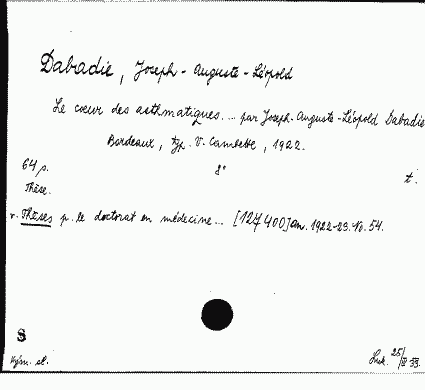 Dabadie, Joseph-Auguste-Léopold
Le cœur des asthmatiques... par Joseph-Auguste-Léopold Dabadie
Bordeaux, typ. V. Cambette, 1922.
64 p. 8° t.
Thèse.
v. Thèses p. le doctorat en médecine... [127400] an. 1922-23. No. 54.
8
25/III 33.